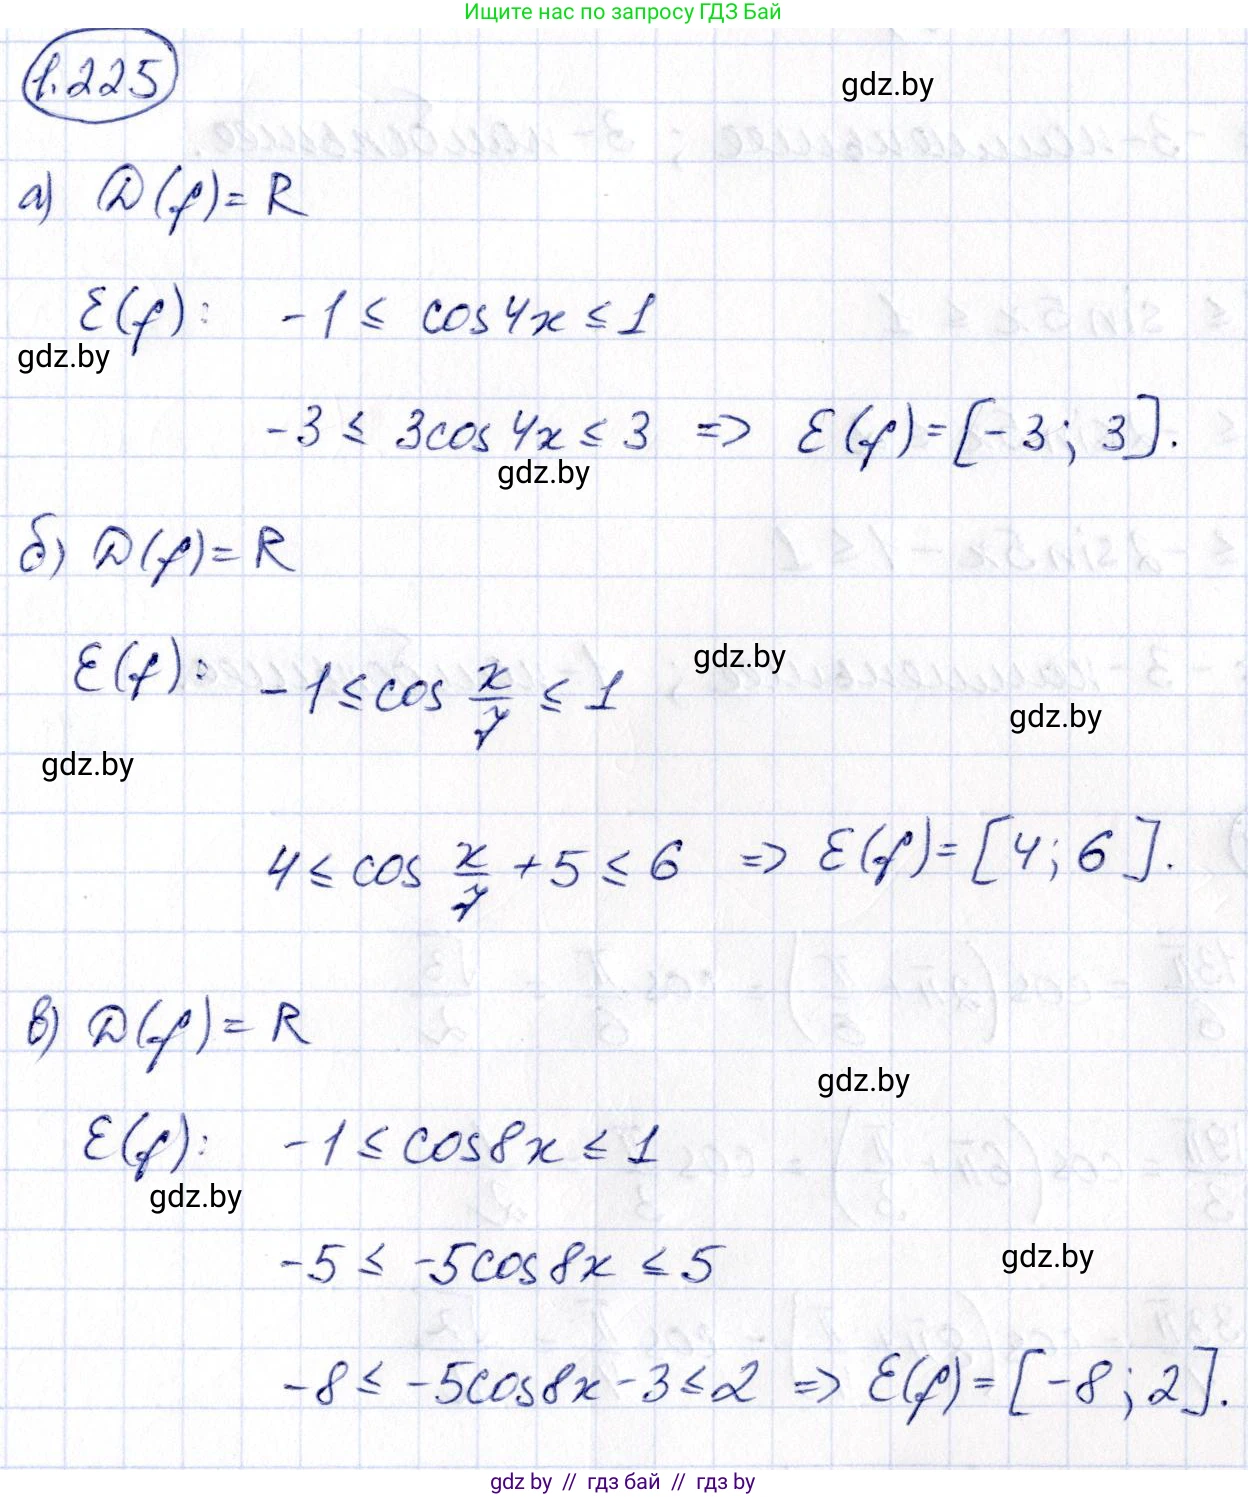 Ищите нас по запросу ГДЗ Бай
1.225
gdz.by
а) D(f)=R
E(f): -1 ≤ cos4x ≤ 1
gdz.by
-3 ≤ 3cos4x ≤ 3 => E(f)=[-3; 3].
gdz.by
б) D(f)=R
E(f): -1 ≤ cos x/7 ≤ 1
gdz.by
gdz.by
gdz.by
4 ≤ cos x/7 + 5 ≤ 6 => E(f)=[4; 6].
в) D(f)=R
gdz.by
E(f): -1 ≤ cos8x ≤ 1
gdz.by
-5 ≤ -5cos8x ≤ 5
gdz.by
-8 ≤ -5cos8x - 3 ≤ 2 => E(f)=[-8; 2].
gdz by // гдз бай // гдз by